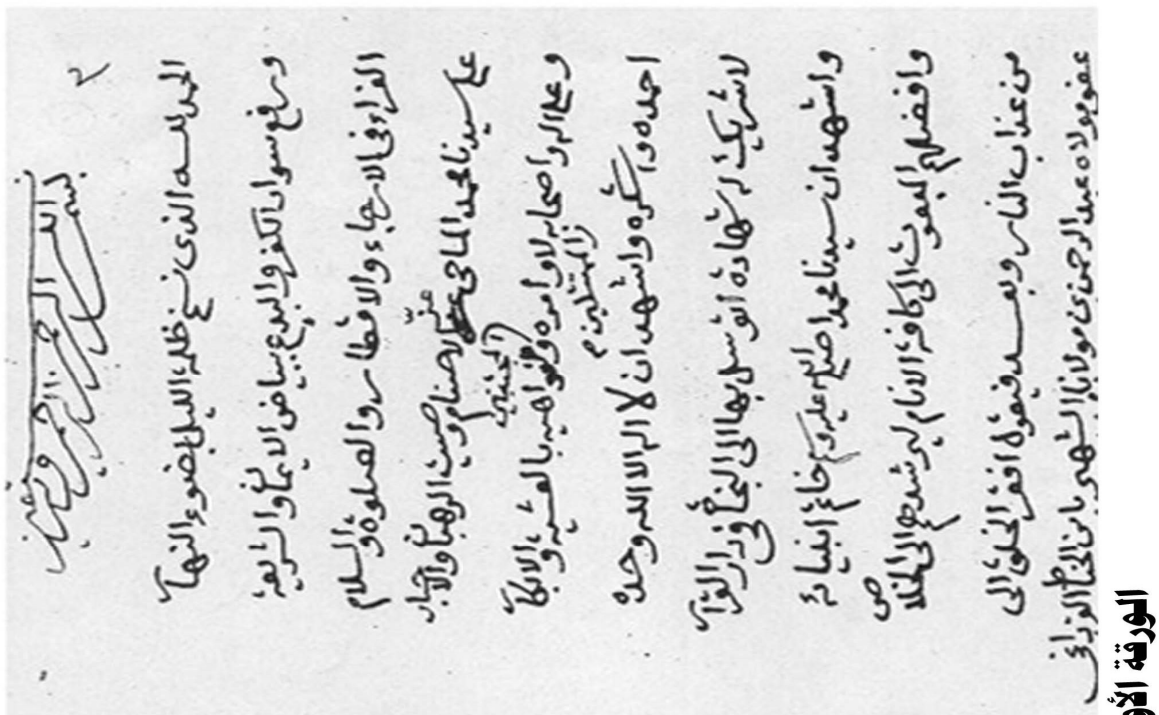 بسم الله الرحمن الرحيم وبه نستعين
الحمد لله الذى نسخ ظلمة الليل بضوء النهار
ورفع سواد الكفر والبدع بياض الايمان والشريعة
الغراء فى الارجاء والاقطار والصلوة والسلام
على سيدنا محمد الماحى الاصنام وبيت الرهبان والاحبار
وعلى اله واصحابه لاوامره ونواهيه بالعشى والابكار
المجتنبين
الممتثلين
احمده واشكره واشهد ان لا اله الا الله وحده
لا شريك له شهادة اتوسل بها الى النجاة فى دار القرار
واشهد ان سيدنا محمدا صلى الله عليه وسلم خاتم انبيائه
وافضلهم المبعوث الى كافة الانام ليرشدهم الى الخلاص
من عذاب النار وبعد فيقول افقر الخلق الى
عفو مولاه عبد الرحمن بن مولانا الشهير بابن
الورقة الأو